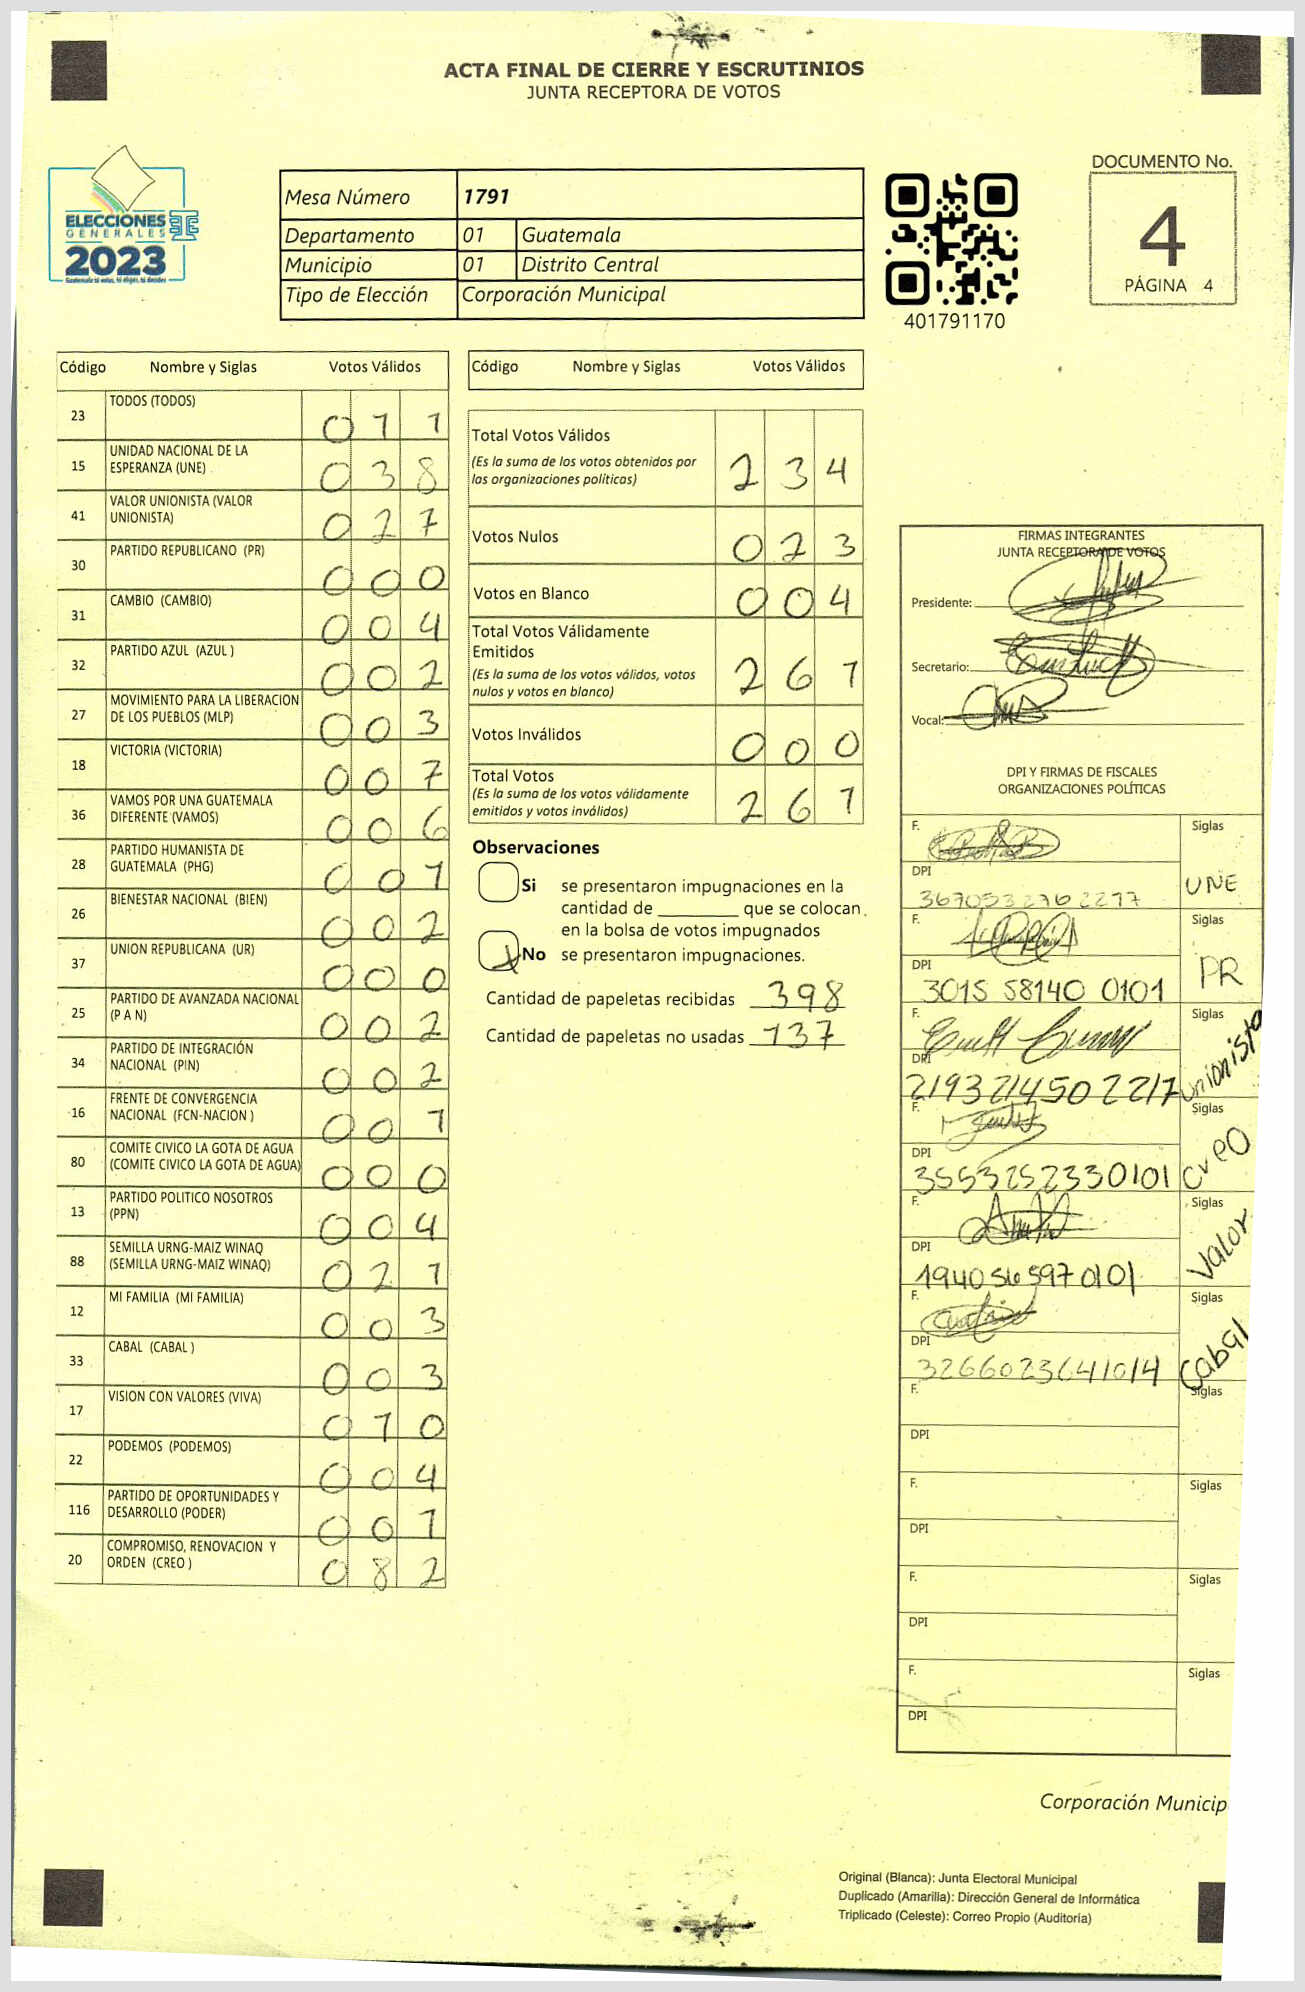 ACTA FINAL DE CIERRE Y ESCRUTINIOS
JUNTA RECEPTORA DE VOTOS
ELECCIONES
GENERALES
2023
Guatemala tú votas, tú eliges, tú decides
Mesa Número 1791
Departamento 01 Guatemala
Municipio 01 Distrito Central
Tipo de Elección Corporación Municipal
401791170
DOCUMENTO No.
4
PÁGINA 4
Código Nombre y Siglas Votos Válidos
23 TODOS (TODOS) 0 1 1
15 UNIDAD NACIONAL DE LA
ESPERANZA (UNE) 0 3 8
41 VALOR UNIONISTA (VALOR
UNIONISTA) 0 2 7
30 PARTIDO REPUBLICANO (PR) 0 0 0
31 CAMBIO (CAMBIO) 0 0 4
32 PARTIDO AZUL (AZUL ) 0 0 2
27 MOVIMIENTO PARA LA LIBERACION
DE LOS PUEBLOS (MLP) 0 0 3
18 VICTORIA (VICTORIA) 0 0 7
36 VAMOS POR UNA GUATEMALA
DIFERENTE (VAMOS) 0 0 6
28 PARTIDO HUMANISTA DE
GUATEMALA (PHG) 0 0 1
26 BIENESTAR NACIONAL (BIEN) 0 0 2
37 UNION REPUBLICANA (UR) 0 0 0
25 PARTIDO DE AVANZADA NACIONAL
(P A N) 0 0 2
34 PARTIDO DE INTEGRACIÓN
NACIONAL (PIN) 0 0 2
16 FRENTE DE CONVERGENCIA
NACIONAL (FCN-NACION ) 0 0 1
80 COMITE CIVICO LA GOTA DE AGUA
(COMITE CIVICO LA GOTA DE AGUA) 0 0 0
13 PARTIDO POLITICO NOSOTROS
(PPN) 0 0 4
88 SEMILLA URNG-MAIZ WINAQ
(SEMILLA URNG-MAIZ WINAQ) 0 2 1
12 MI FAMILIA (MI FAMILIA) 0 0 3
33 CABAL (CABAL ) 0 0 3
17 VISION CON VALORES (VIVA) 0 1 0
22 PODEMOS (PODEMOS) 0 0 4
116 PARTIDO DE OPORTUNIDADES Y
DESARROLLO (PODER) 0 0 1
20 COMPROMISO, RENOVACION Y
ORDEN (CREO ) 0 8 2
Código Nombre y Siglas Votos Válidos
Total Votos Válidos
(Es la suma de los votos obtenidos por
las organizaciones políticas) 2 3 4
Votos Nulos 0 2 3
Votos en Blanco 0 0 4
Total Votos Válidamente
Emitidos
(Es la suma de los votos válidos, votos
nulos y votos en blanco) 2 6 1
Votos Inválidos 0 0 0
Total Votos
(Es la suma de los votos válidamente
emitidos y votos inválidos) 2 6 1
Observaciones
Si se presentaron impugnaciones en la
cantidad de ________ que se colocan
en la bolsa de votos impugnados
No se presentaron impugnaciones.
Cantidad de papeletas recibidas 398
Cantidad de papeletas no usadas 137
FIRMAS INTEGRANTES
JUNTA RECEPTORA DE VOTOS
Presidente:
Secretario:
Vocal:
DPI Y FIRMAS DE FISCALES
ORGANIZACIONES POLÍTICAS
F. Siglas
DPI UNE
3670532762217
F. Siglas
DPI PR
3015 58140 0101
F. Siglas
DPI Unionista
2193214502217
F. Siglas
DPI Creo
3553252330101
F. Siglas
DPI Valor
1940565970101
F. Siglas
DPI Cabal
3266023641014
F. Siglas
DPI
F. Siglas
DPI
F. Siglas
DPI
F. Siglas
DPI
Corporación Municip
Original (Blanca): Junta Electoral Municipal
Duplicado (Amarilla): Dirección General de Informática
Triplicado (Celeste): Correo Propio (Auditoría)